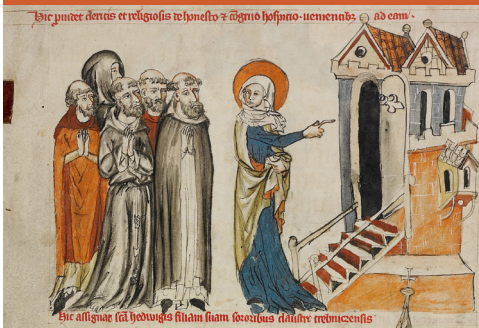 Hic puidet clericis et religiosis de honesto ⁊ cōgruo hospicio · uenientibꝫ ad eam ·
Hic assignat scā hedwigis filiam suam sororibus claustri trebniczensis